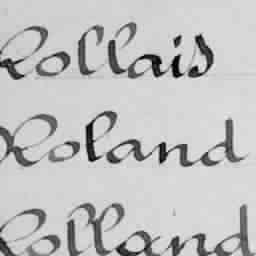 Rollais
Roland
Rolland